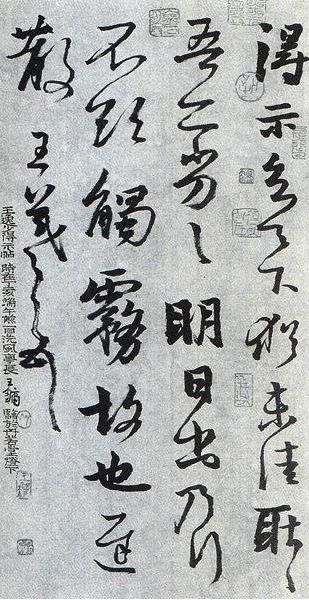 得示知足下猶未佳耿〻
吾亦劣〻明日出乃行
不欲觸霧故也遲
散王羲之頓首
王羲之得示帖 時在丁亥端午